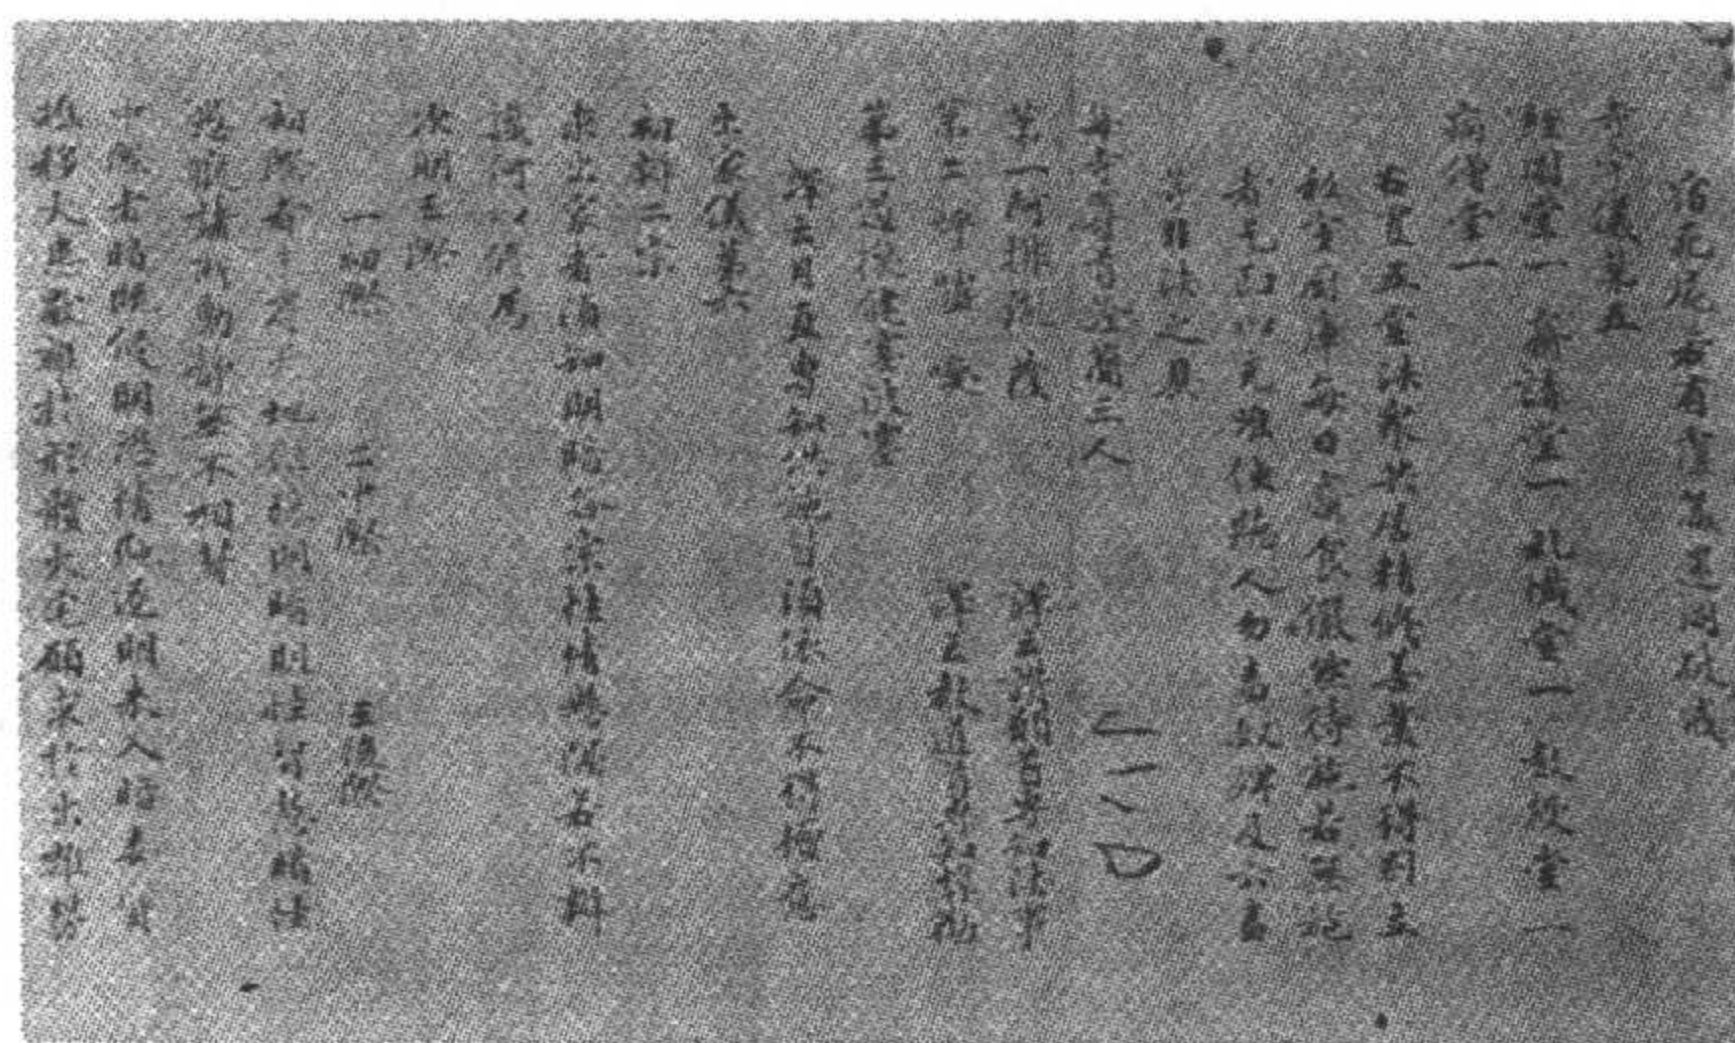 宿死屍若有覆藏還同破戒
寺宇儀第五
經圖堂一 齋講堂一 禮懺堂一 教授堂一
病僧堂一
右置五堂法衆共居精修善業不得別立
私室廚庫每日齋食儼然待施若無施
者乞丐以充唯使聽人勿畜奴婢及六畜
等非法之具
每寺尊首詮簡三人
第一阿拂胤薩 譯云讚願首專知法事
第二呼嚧喚 譯云教道首專知獎勸
第三遏換健塞波塞
譯云月直專知供施皆須依命不得擅意
出家儀第六
初辯二宗
求出家者須知明暗各宗性情懸隔若不辯
識何以修爲
次明三際
一初際 二中際 三後際
初際者未有天地但殊明暗明性智慧暗性
愚癡諸所動靜無不相背
中際者暗既侵明恣情馳逐明來入暗委質
推移大患厭離於形體火宅願求於出離勞